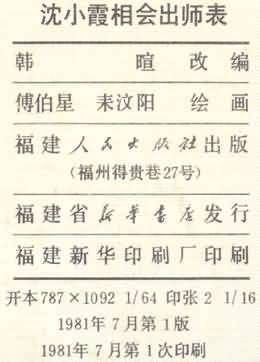 沈小霞相会出师表
韩 暄 改 编
傅伯星 耒汶阳 绘 画
福建人民出版社出版
(福州得贵巷27号)
福建省新华书店发行
福建新华印刷厂印刷
开本787×1092 1/64 印张2 1/16
1981年7月第1版
1981年7月第1次印刷